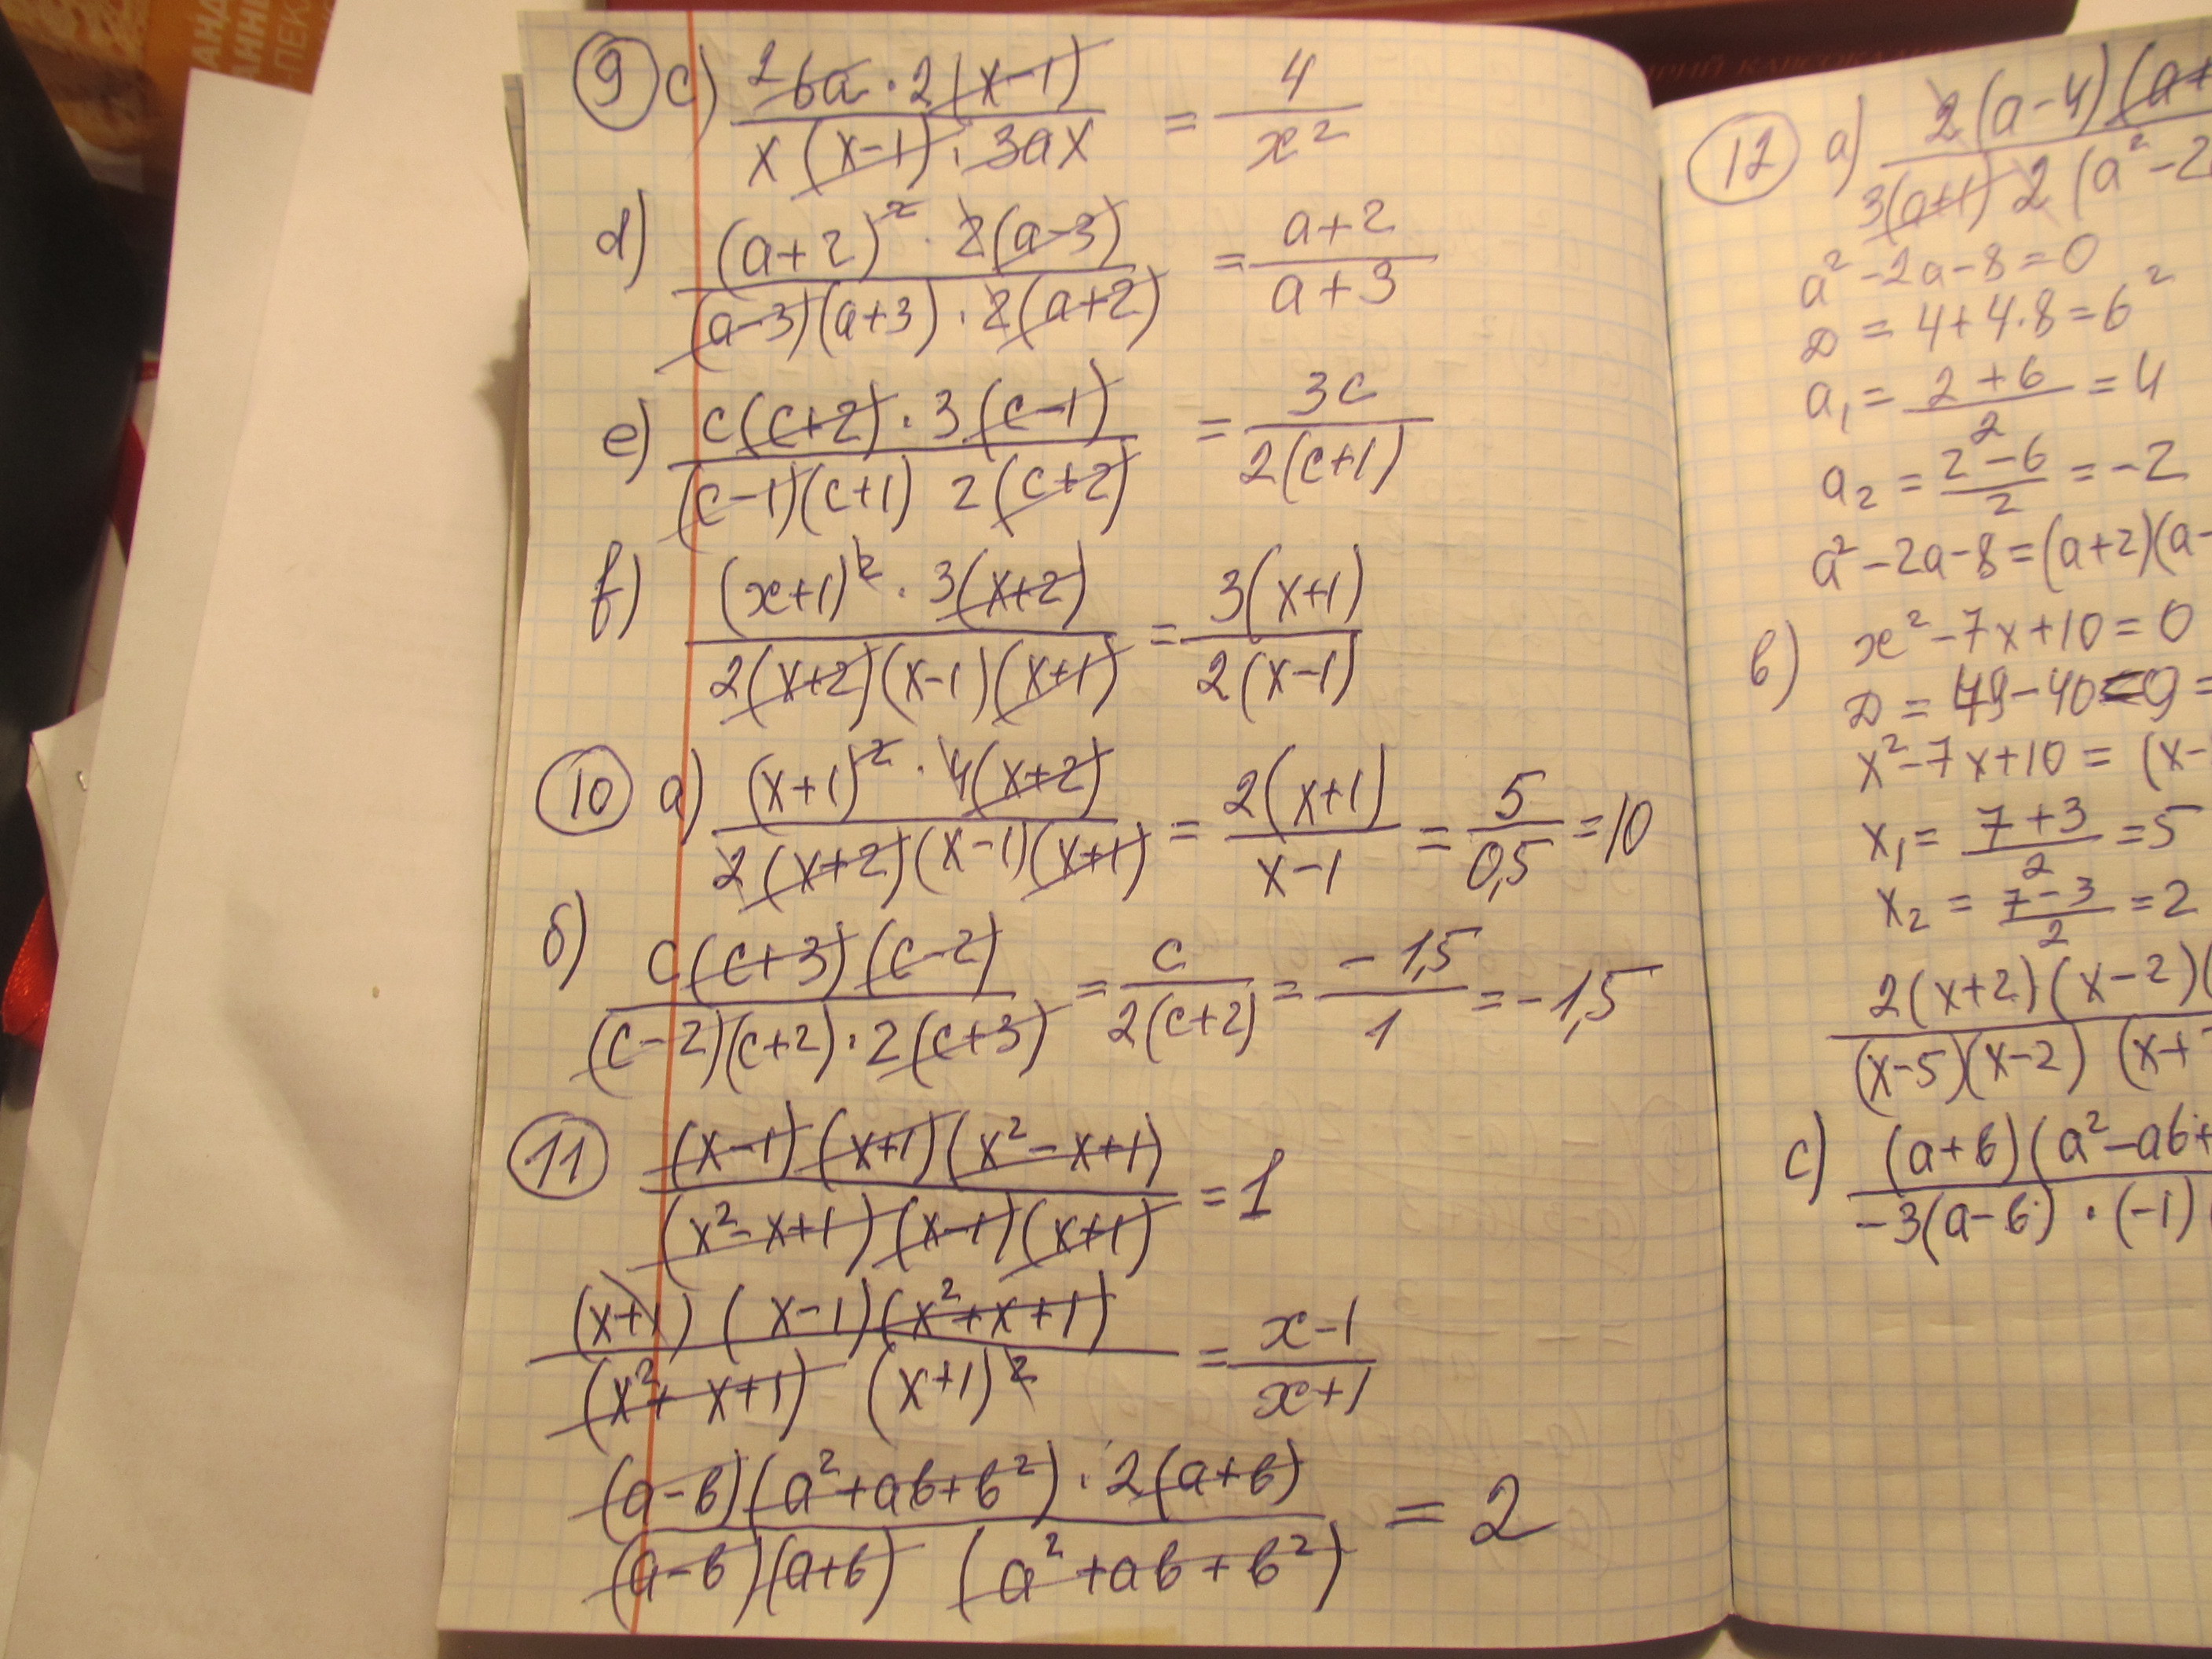 АНД
АННЫ
-ПЕК
9 c) (2 6a · 2(x-1)) / (x(x-1) · 3ax) = 4 / x²
d) ((a+2)² · 2(a-3)) / ((a-3)(a+3) · 2(a+2)) = (a+2) / (a+3)
e) (c(c+2) · 3(c-1)) / ((c-1)(c+1) 2(c+2)) = 3c / (2(c+1))
f) ((x+1)² · 3(x+2)) / (2(x+2)(x-1)(x+1)) = 3(x+1) / (2(x-1))
10 a) ((x+1)² · 4(x+2)) / (2(x+2)(x-1)(x+1)) = 2(x+1) / (x-1) = 5 / 0,5 = 10
б) (c(c+3)(c-2)) / ((c-2)(c+2) · 2(c+3)) = c / (2(c+2)) = -1,5 / 1 = -1,5
11 ((x-1)(x+1)(x²-x+1)) / ((x²-x+1)(x-1)(x+1)) = 1
((x+1)(x-1)(x²+x+1)) / ((x²+x+1)(x+1)²) = (x-1) / (x+1)
((a-в)(a²+aв+в²) · 2(a+в)) / ((a-в)(a+в)(a²+aв+в²)) = 2
12 a) 2(a-4)(a+ / 3(a+1) 2(a²-2
a²-2a-8=0
D = 4+4·8=6²
a₁ = (2+6) / 2 = 4
a₂ = (2-6) / 2 = -2
a²-2a-8=(a+2)(a-
в) x²-7x+10=0
D = 49-40=9=
x²-7x+10 = (x-
x₁ = (7+3) / 2 = 5
x₂ = (7-3) / 2 = 2
2(x+2)(x-2)( / (x-5)(x-2) (x+
c) (a+в)(a²-aв+ / -3(a-в) · (-1)